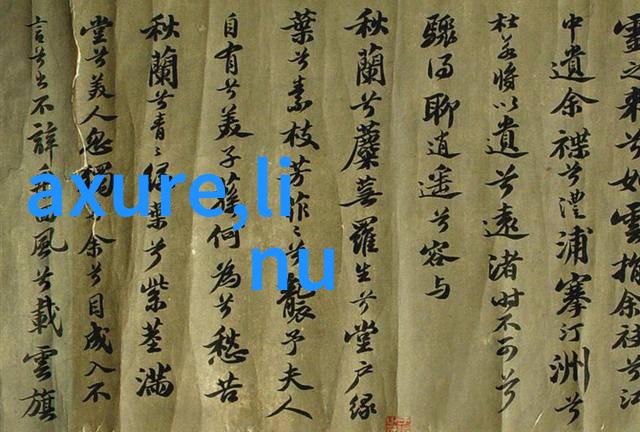 靈之來兮如雲捐余袂兮江
中遺余褋兮澧浦搴汀洲兮
杜若將以遺兮遠渚時不可兮
驟得聊逍遙兮容与
秋蘭兮蘪蕪羅生兮堂户緑
葉兮素枝芳菲々兮襲予夫人
自有兮美子蓀何為兮愁苦
秋蘭兮青々緑葉兮紫莖滿
堂兮美人忽獨余兮目成入不
言兮出不辭風兮載雲旗
axure,li
nu